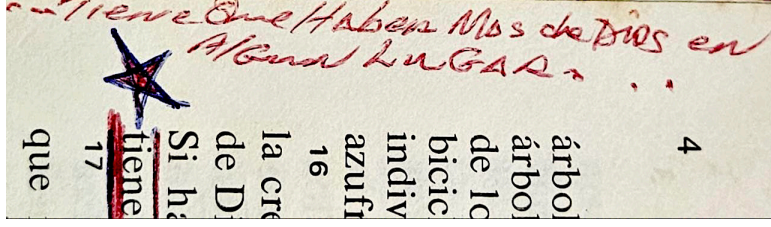 ...Tiene Que Haber Mas de Dios en
AlGun LuGAR. . .
4
árbol
árbol
de lo
bicic
indiv
azufr
16
la cre
de Di
Si ha
tiene
17
que